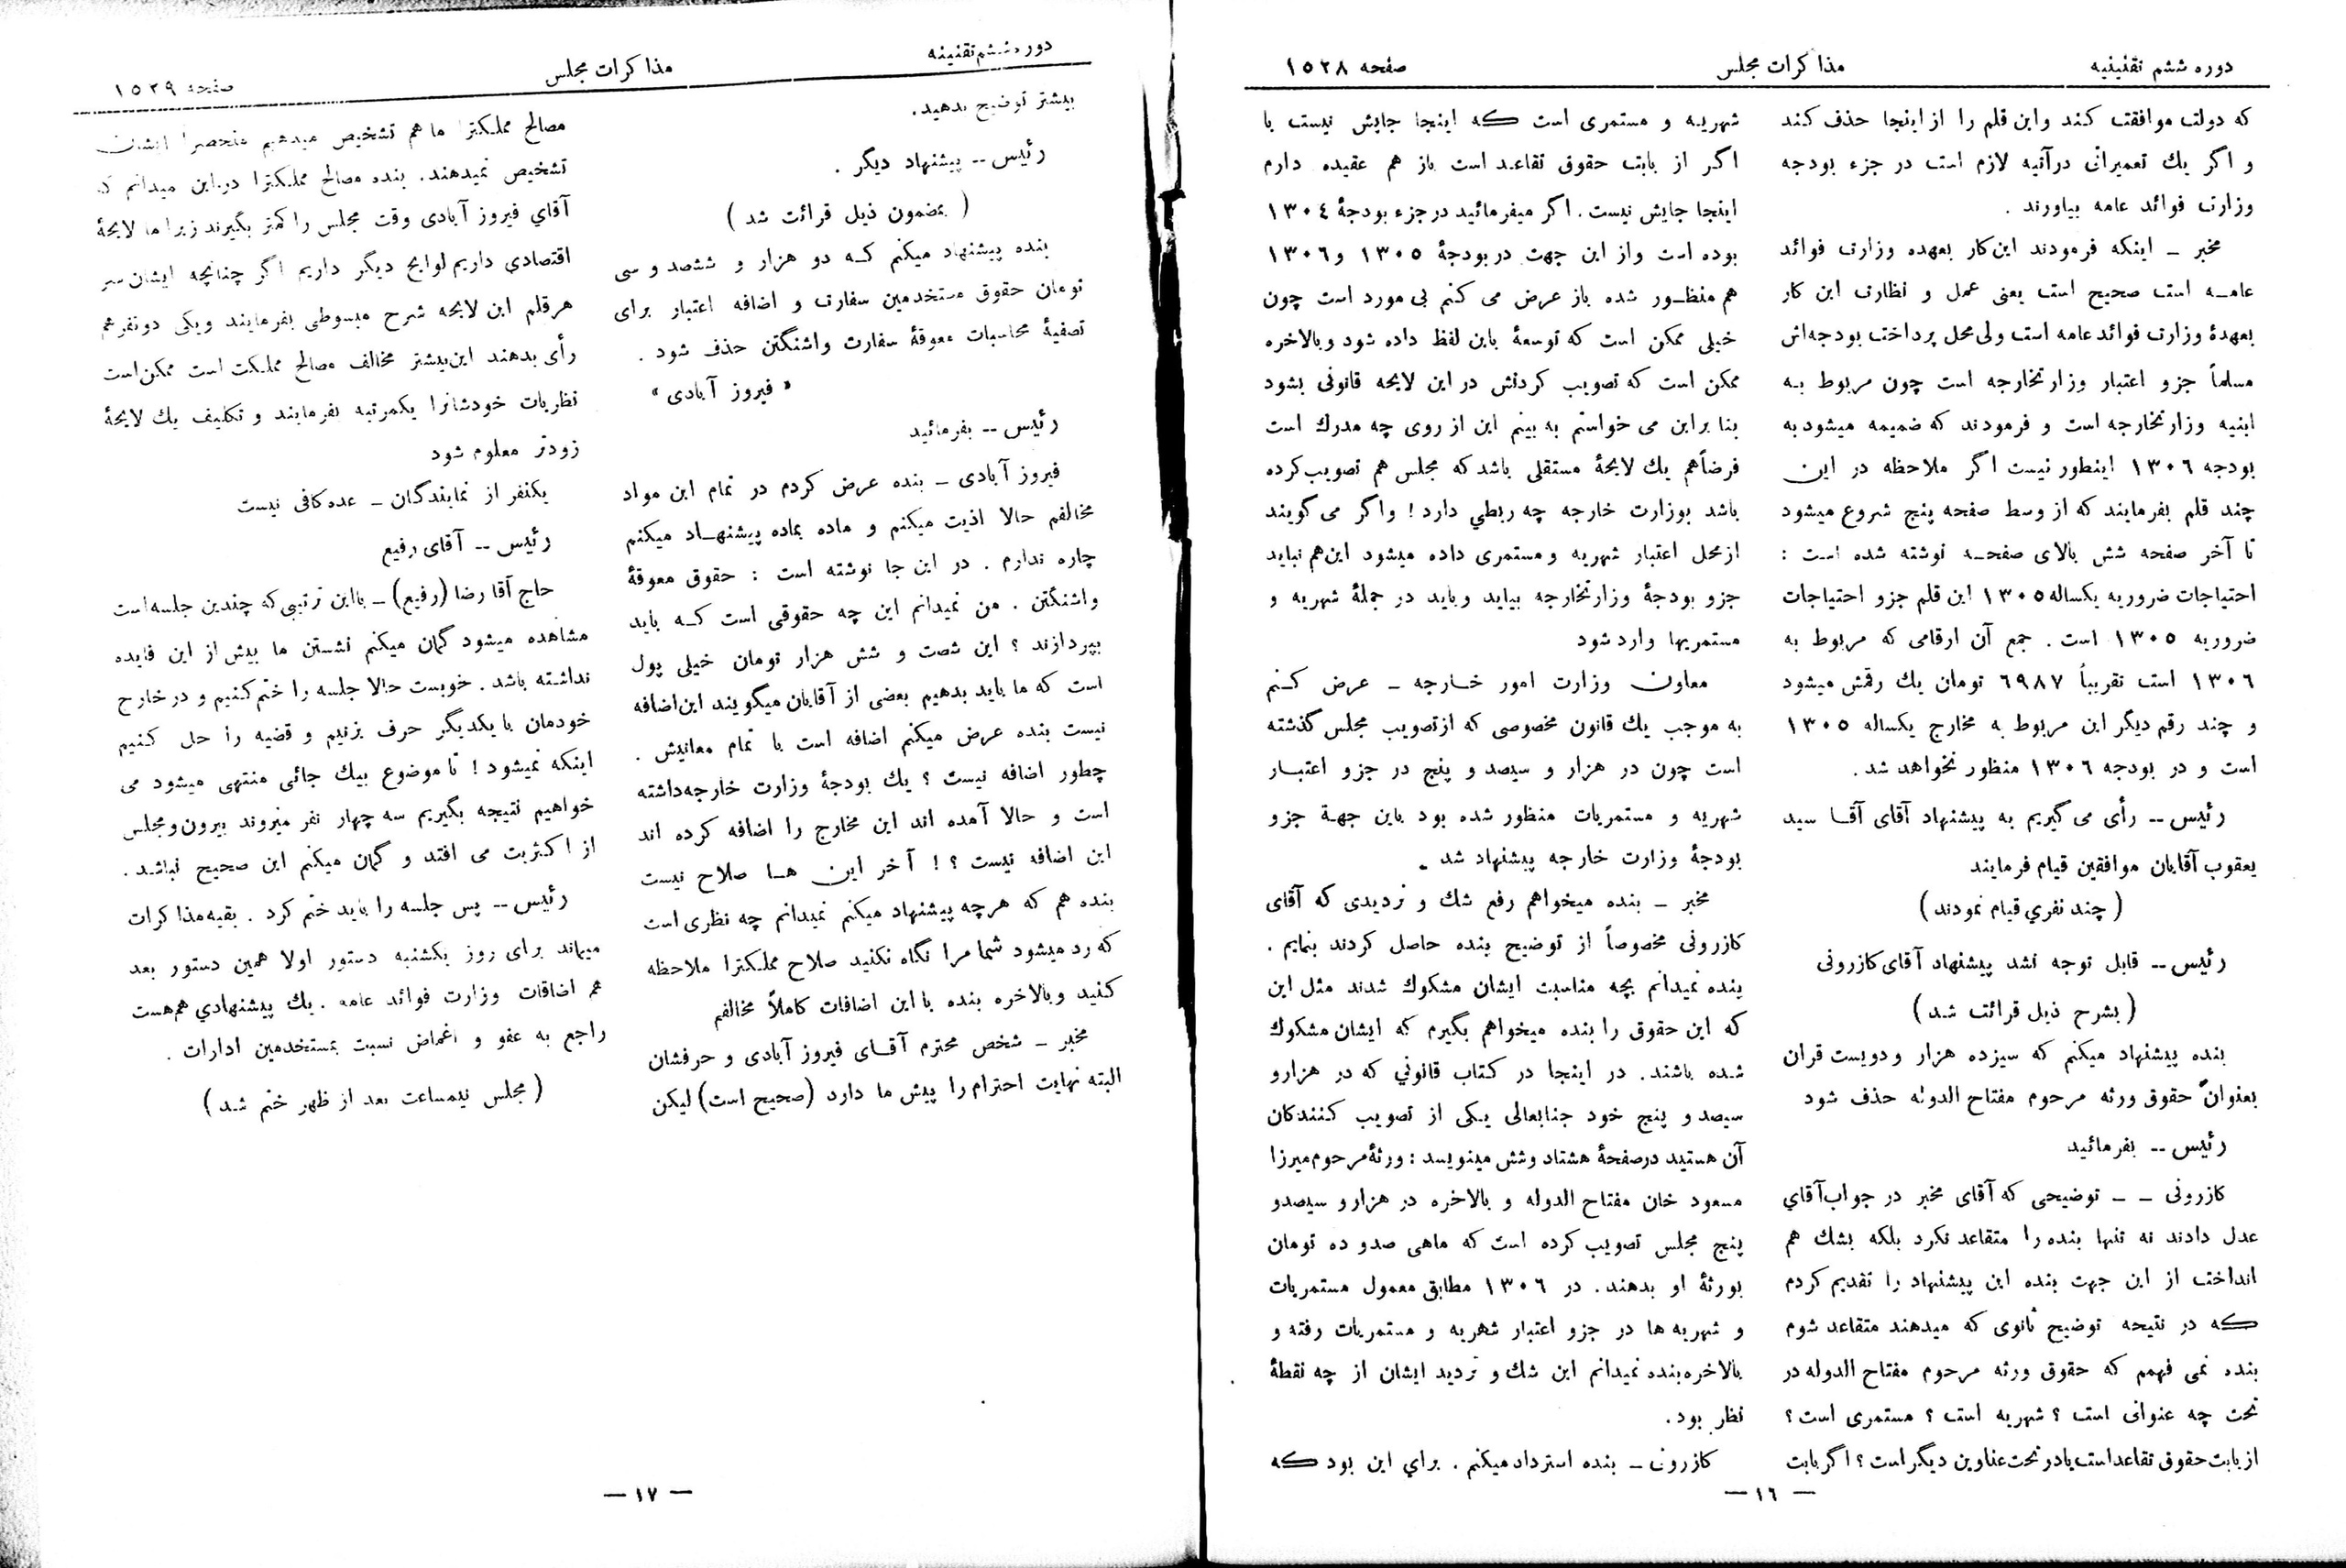 دوره ششم تقنینیه
مذاکرات مجلس
صفحه ۱۵۲۸
که دولت موافقت کند واین قلم را از اینجا حذف کند
و اگر یك تعمیراتی درآتیه لازم است در جزء بودجه
وزارت فوائد عامه بیاورند .
مخبر ــ اینکه فرمودند این‌کار بعهده وزارت فوائد
عامه است صحیح است یعنی عمل و نظارت این کار
بعهدهٔ وزارت فوائد عامه است ولی محل پرداخت بودجه‌اش
مسلماً جزو اعتبار وزارتخارجه است چون مربوط به
ابنیه وزارتخارجه است و فرمودند که ضمیمه میشود به
بودجه ۱۳۰۶ اینطور نیست اگر ملاحظه در این
چند قلم بفرمایند که از وسط صفحه پنج شروع میشود
تا آخر صفحه شش بالای صفحه نوشته شده است :
احتیاجات ضروریه یکساله ۱۳۰۵ این قلم جزو احتیاجات
ضروریه ۱۳۰۵ است . جمع آن ارقامی که مربوط به
۱۳۰۶ است تقریباً ۶۹۸۷ تومان یك رقمش میشود
و چند رقم دیگر این مربوط به مخارج یکساله ۱۳۰۵
است و در بودجه ۱۳۰۶ منظور نخواهد شد.
رئیس -- رأی می گیریم به پیشنهاد آقای آقا سید
یعقوب آقایان موافقین قیام فرمایند
( چند نفري قیام نمودند )
رئیس -- قابل توجه نشد پیشنهاد آقای کازرونی
( بشرح ذیل قرائت شد )
بنده پیشنهاد میکنم که سیزده هزار و دویست قران
بعنوان حقوق ورثه مرحوم مفتاح الدوله حذف شود
رئیس -- بفرمائید
کازرونی ــ ــ توضیحی که آقای مخبر در جواب آقاي
عدل دادند نه تنها بنده را متقاعد نکرد بلکه بشك هم
انداخت از این جهت بنده این پیشنهاد را تقدیم کردم
که در نتیحه توضیح ثانوی که میدهند متقاعد شوم
بنده نمی فهمم که حقوق ورثه مرحوم مفتاح الدوله در
تحت چه عنوانی است ؟ شهریه است ؟ مستمری است ؟
از بابت حقوق تقاعد است یا در تحت عناوین دیگر است ؟ اگر بابت
شهریه و مستمری است که اینجا جایش نیست یا
اگر از بابت حقوق تقاعد است باز هم عقیده دارم
اینجا جایش نیست . اگر میفرمائید در جزء بودجهٔ ۱۳۰۴
بوده است واز این جهت در بودجهٔ ۱۳۰۵ و ۱۳۰۶
هم منظور شده باز عرض می کنم بی مورد است چون
خیلی ممکن است که توسعهٔ باین لفظ داده شود و بالاخره
ممکن است که تصویب کردنش در این لایحه قانونی بشود
بنا براین می خواستم به بینم این از روی چه مدرك است
فرضاًهم یك لایحهٔ مستقلی باشد که مجلس هم تصویب کرده
باشد بوزارت خارجه چه ربطي دارد ! واگر می گویند
از محل اعتبار شهریه و مستمری داده میشود این‌هم نباید
جزو بودجهٔ وزارتخارجه بیاید وباید در جملهٔ شهریه و
مستمریها وارد شود
معاون وزارت امور خارجه ــ عرض کنم
به موجب یك قانون مخصوصی که ازتصویب مجلس گذشته
است چون در هزار و سیصد و پنج در جزو اعتبار
شهریه و مستمریات منظور شده بود باین جهة جزو
بودجهٔ وزارت خارجه پیشنهاد شد .
مخبر ــ بنده میخواهم رفع شك و تردیدی که آقای
کازرونی مخصوصاً از توضیح بنده حاصل کردند بنمایم .
بنده نمیدانم بچه مناسبت ایشان مشکوك شدند مثل این
که این حقوق را بنده میخواهم بگیرم که ایشان مشکوك
شده باشند . در اینجا در کتاب قانوني که در هزار و
سیصد و پنج خود جنابعالی یکی از تصویب کنندکان
آن هستید درصفحهٔ هشتاد وشش مینویسد : ورثهٔ مرحوم میرزا
مسعود خان مفتاح الدوله و بالاخره در هزار و سیصدو
پنج مجلس تصویب کرده است که ماهی صدو ده تومان
بورثهٔ او بدهند . در ۱۳۰۶ مطابق معمول مستمریات
و شهریه ها در جزو اعتبار شهریه و مستمریات رفته و
بالاخره بنده نمیدانم این شك و تردید ایشان از چه نقطهٔ
نظر بود.
کازرونی ــ بنده استرداد میکنم . براي این بود که
— ۱۶ —
دوره ششم تقنینه
مذاکرات مجلس
صفحه ۱۵۲۹
بیشتر توضیح بدهید.
رئیس -- پیشنهاد دیگر .
( بمضمون ذیل قرائت شد )
بنده پیشنهاد میکنم که دو هزار و ششصد و سی
تومان حقوق مستخدمین سفارت و اضافه اعتبار برای
تصفیهٔ محاسبات معوقهٔ سفارت واشنگتن حذف شود .
« فیروز آبادی »
رئیس -- بفرمائید
فیروز آبادی ــ بنده عرض کردم در تمام این مواد
مخالفم حالا اذیت میکنم و ماده بماده پیشنهاد میکنم
چاره ندارم . در این جا نوشته است : حقوق معوقهٔ
واشنگتن . من نمیدانم این چه حقوقی است که باید
بپردازند ؟ این شصت و شش هزار تومان خیلی پول
است که ما باید بدهیم بعضی از آقایان میگویند این اضافه
نیست بنده عرض میکنم اضافه است با تمام معانیش .
چطور اضافه نیست ؟ یك بودجهٔ وزارت خارجه داشته
است و حالا آمده اند این مخارج را اضافه کرده اند
این اضافه نیست ؟ ! آخر این ها صلاح نیست
بنده هم که هرچه پیشنهاد میکنم نمیدانم چه نظری است
که رد میشود شما مرا نگاه نکنید صلاح مملکترا ملاحظه
کنید وبالاخره بنده با این اضافات کاملاً مخالفم
مخبر ــ شخص محترم آقای فیروز آبادی و حرفشان
البته نهایت احترام را پیش ما دارد (صحیح است) لیکن
مصالح مملکترا ما هم تشخیص میدهیم منحصراً ایشان
تشخیص نمیدهند. بنده مصالح مملکترا دراین میدانم که
آقاي فیروز آبادی وقت مجلس را کمتر بگیرند زیرا ما لایحهٔ
اقتصادي داریم لوایح دیگر داریم اگر چنانچه ایشان سر
هرقلم این لایحه شرح مبسوطی بفرمایند ویکی دو نفر هم
رأی بدهند این بیشتر مخالف مصالح مملکت است ممکن است
نظریات خودشانرا یکمرتبه بفرمایند و تکلیف یك لایحهٔ
زودتر معلوم شود
یکنفر از نمایندگان ــ عده کافی نیست
رئیس -- آقای رفیع
حاج آقا رضا (رفیع) ــ بااین ترتیبی که چندین جلسه است
مشاهده میشود گمان میکنم نشستن ما بیش از این فایده
نداشته باشد . خوبست حالا جلسه را ختم کنیم و در خارج
خودمان با یکدیگر حرف بزنیم و قضیه را حل کنیم
اینکه نمیشود ! تا موضوع بیك جائی منتهی میشود می
خواهیم نتیجه بگیریم سه چهار نفر میروند بیرون و مجلس
از اکثریت می افتد و گمان میکنم این صحیح نباشد .
رئیس -- پس جلسه را باید ختم کرد . بقیه مذاکرات
میماند برای روز یکشنبه دستور اولا همین دستور بعد
هم اضافات وزارت فوائد عامه . یك پیشنهادي هم هست
راجع به عفو و اغماض نسبت بمستخدمین ادارات .
( مجلس نیمساعت بعد از ظهر ختم شد )
— ۱۷ —